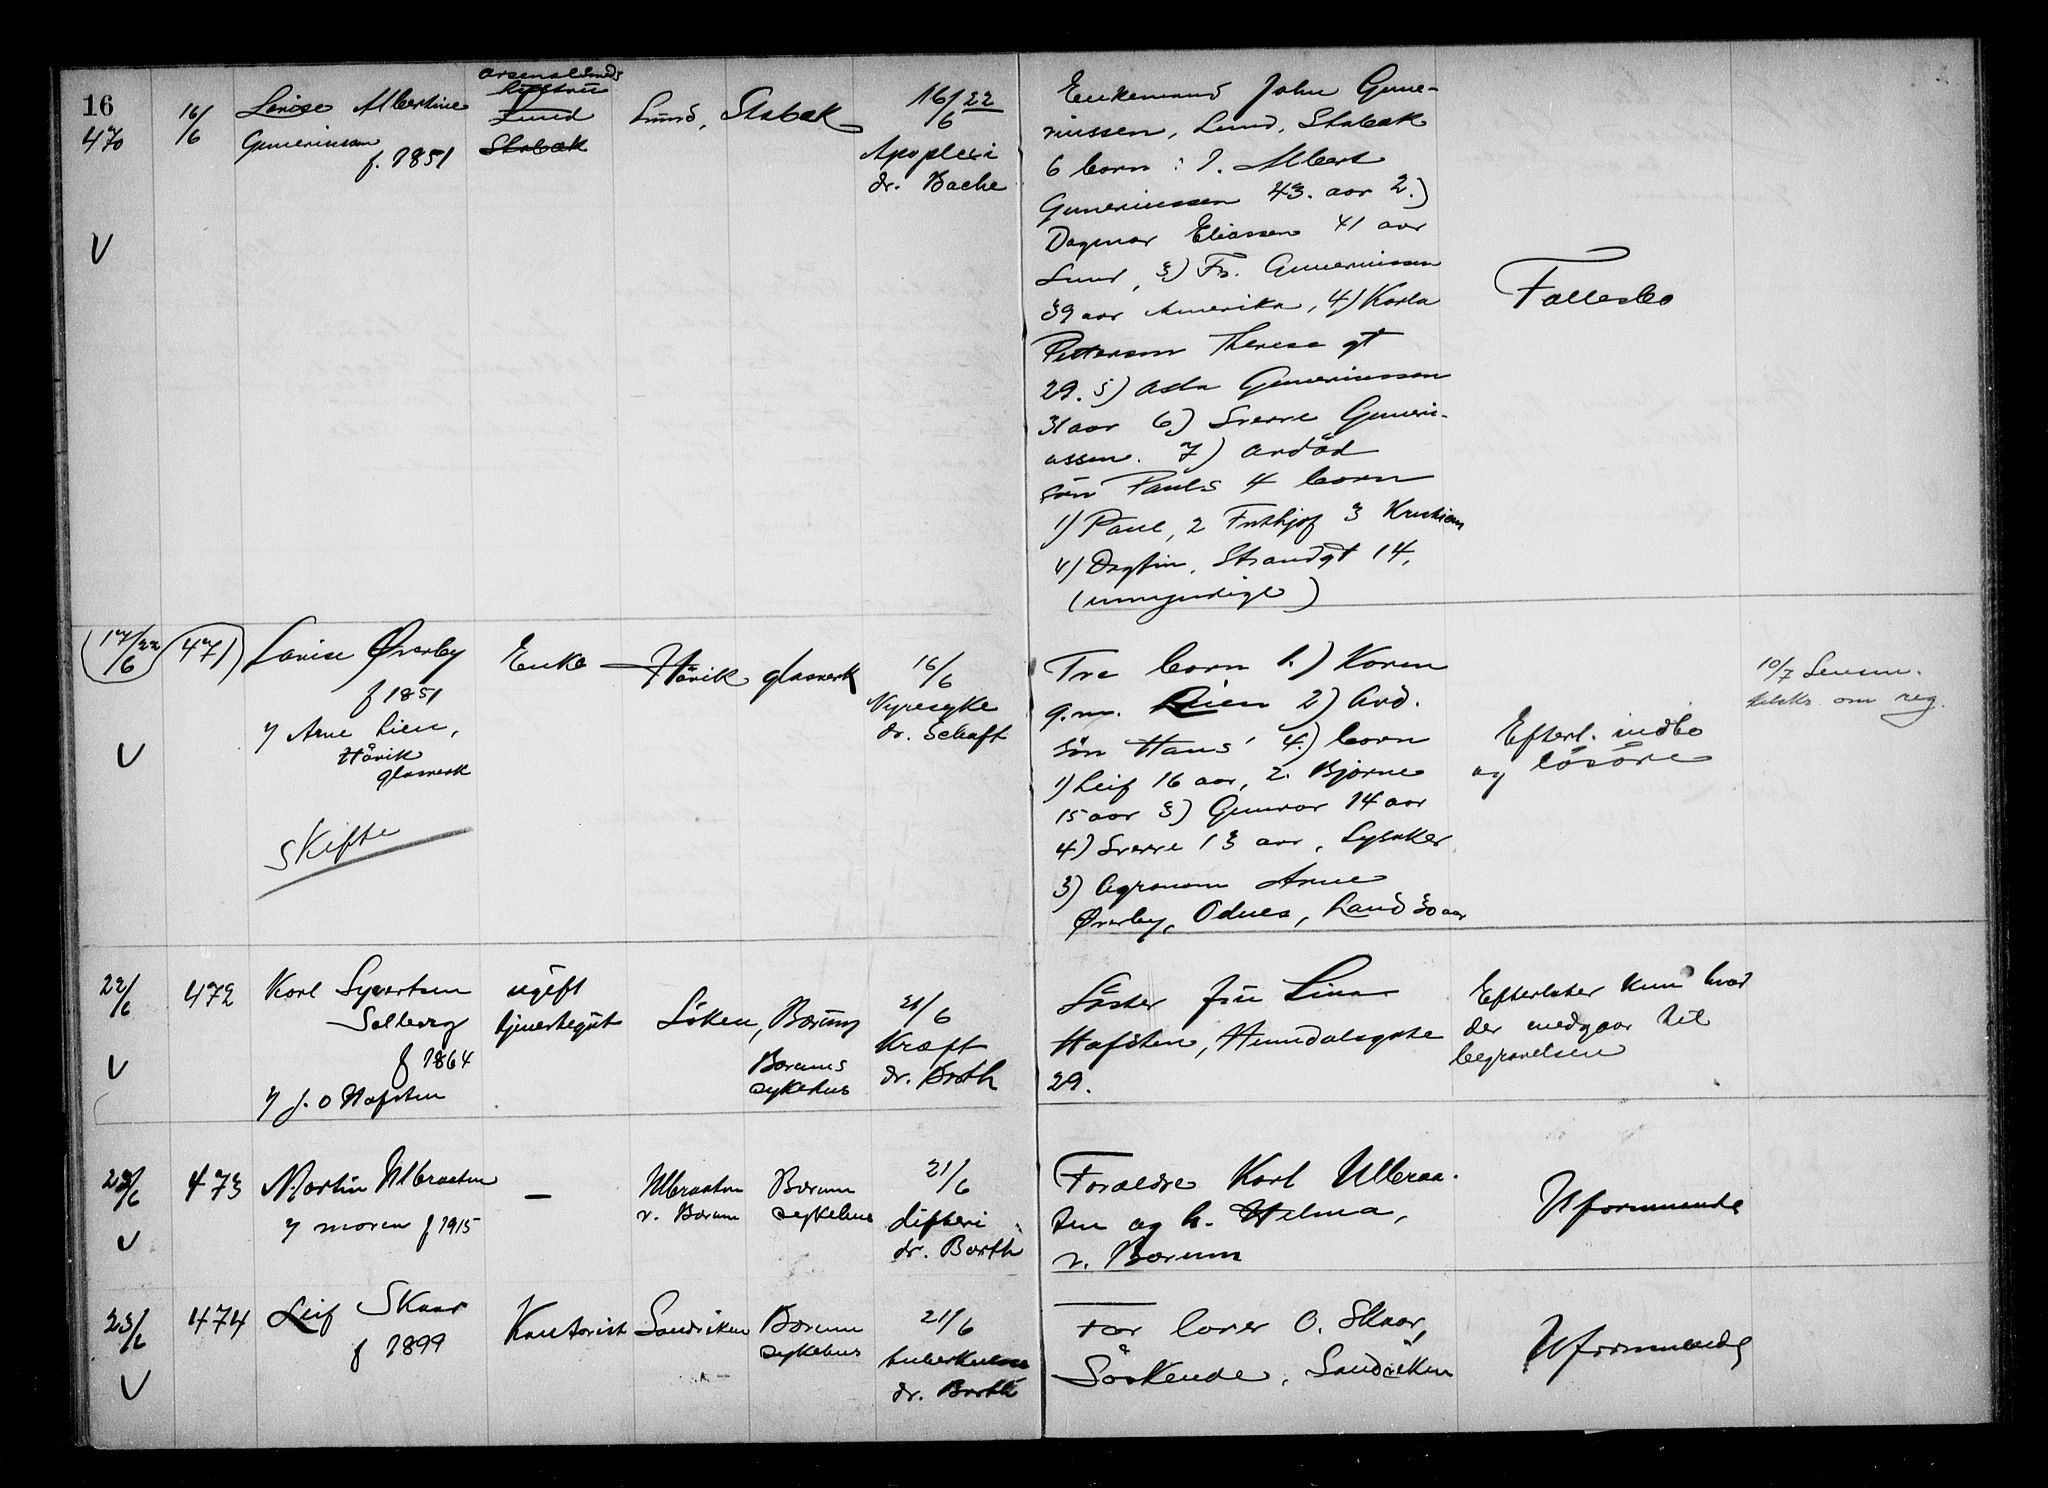 16
470
16/6
Lovise Albertine
Guneriussen
f. 1851
arsenalsmeds
hustru
Lund
Stabæk
Lund, Stabæk
16/6 22
Apoplexi
dr. Bache
Enkemand John Gune-
riussen, Lund, Stabæk
6 børn: 1. Albert
Guneriussen 43. aar 2.)
Dagmar Eliassen 41 aar
Lund, 3) Fr. Guneriussen
39 aar Amerika, 4) Karla
Petterson Theresegt
29. 5) Asta Guneriussen
31 aar 6) Sverre Guneri-
ussen. 7) avdød
søn Pauls 4 børn
1) Paul, 2 Frithjof 3 Kristian
4) Dagfin, Strandgt 14,
(umyndige)
Fællesbo
V
17/6 22
471
Lovise Øverby
f 1851
v/ Arne Lien,
Høvik
glasverk
Skifte
Enke
Høvik glasverk
16/6
Nyresyke
dr. Schaft
Tre børn 1.) Karen
g.m. Lien 2) Avd.
søn Hans' 4.) børn
1) Leif 16 aar, 2. Bjarne
15 aar 3) Gunvor 14 aar
4) Sverre 13 aar, Lysaker
3) Agronom Arne
Øverby, Odnes, Land 30 aar
Efterl. indbo
og løsøre
10/7 Lensm.
tilskr. om reg.
V
22/6
472
Karl Syvertsen
Solberg
f 1864
v/ J. O Hafsten
ugift
tjenestegut
Løken, Bærum
Bærums
sykehus
21/6
Kræft
dr. Barth
Søster fru Lina
Hafsten, Heimdalsgate
29.
Efterlater kun hvad
der medgaar til
begravelsen
V
23/6
473
Martin Ulleraaten
v/ moren f 1915
—
Ulleraaten
v. Bærum
Bærum
sykehus
21/6
difteri
dr. Barth
Forældre Karl Ulleraa-
ten og h. Helma,
v. Bærum
Uformuende
V
23/6
474
Leif Skaar
f 1899
Kontorist
Sandviken
Bærum
sykehus
21/6
tuberkulose
dr. Barth
Far lærer O. Skaar,
Søskende, Sandviken
Uformuende
V